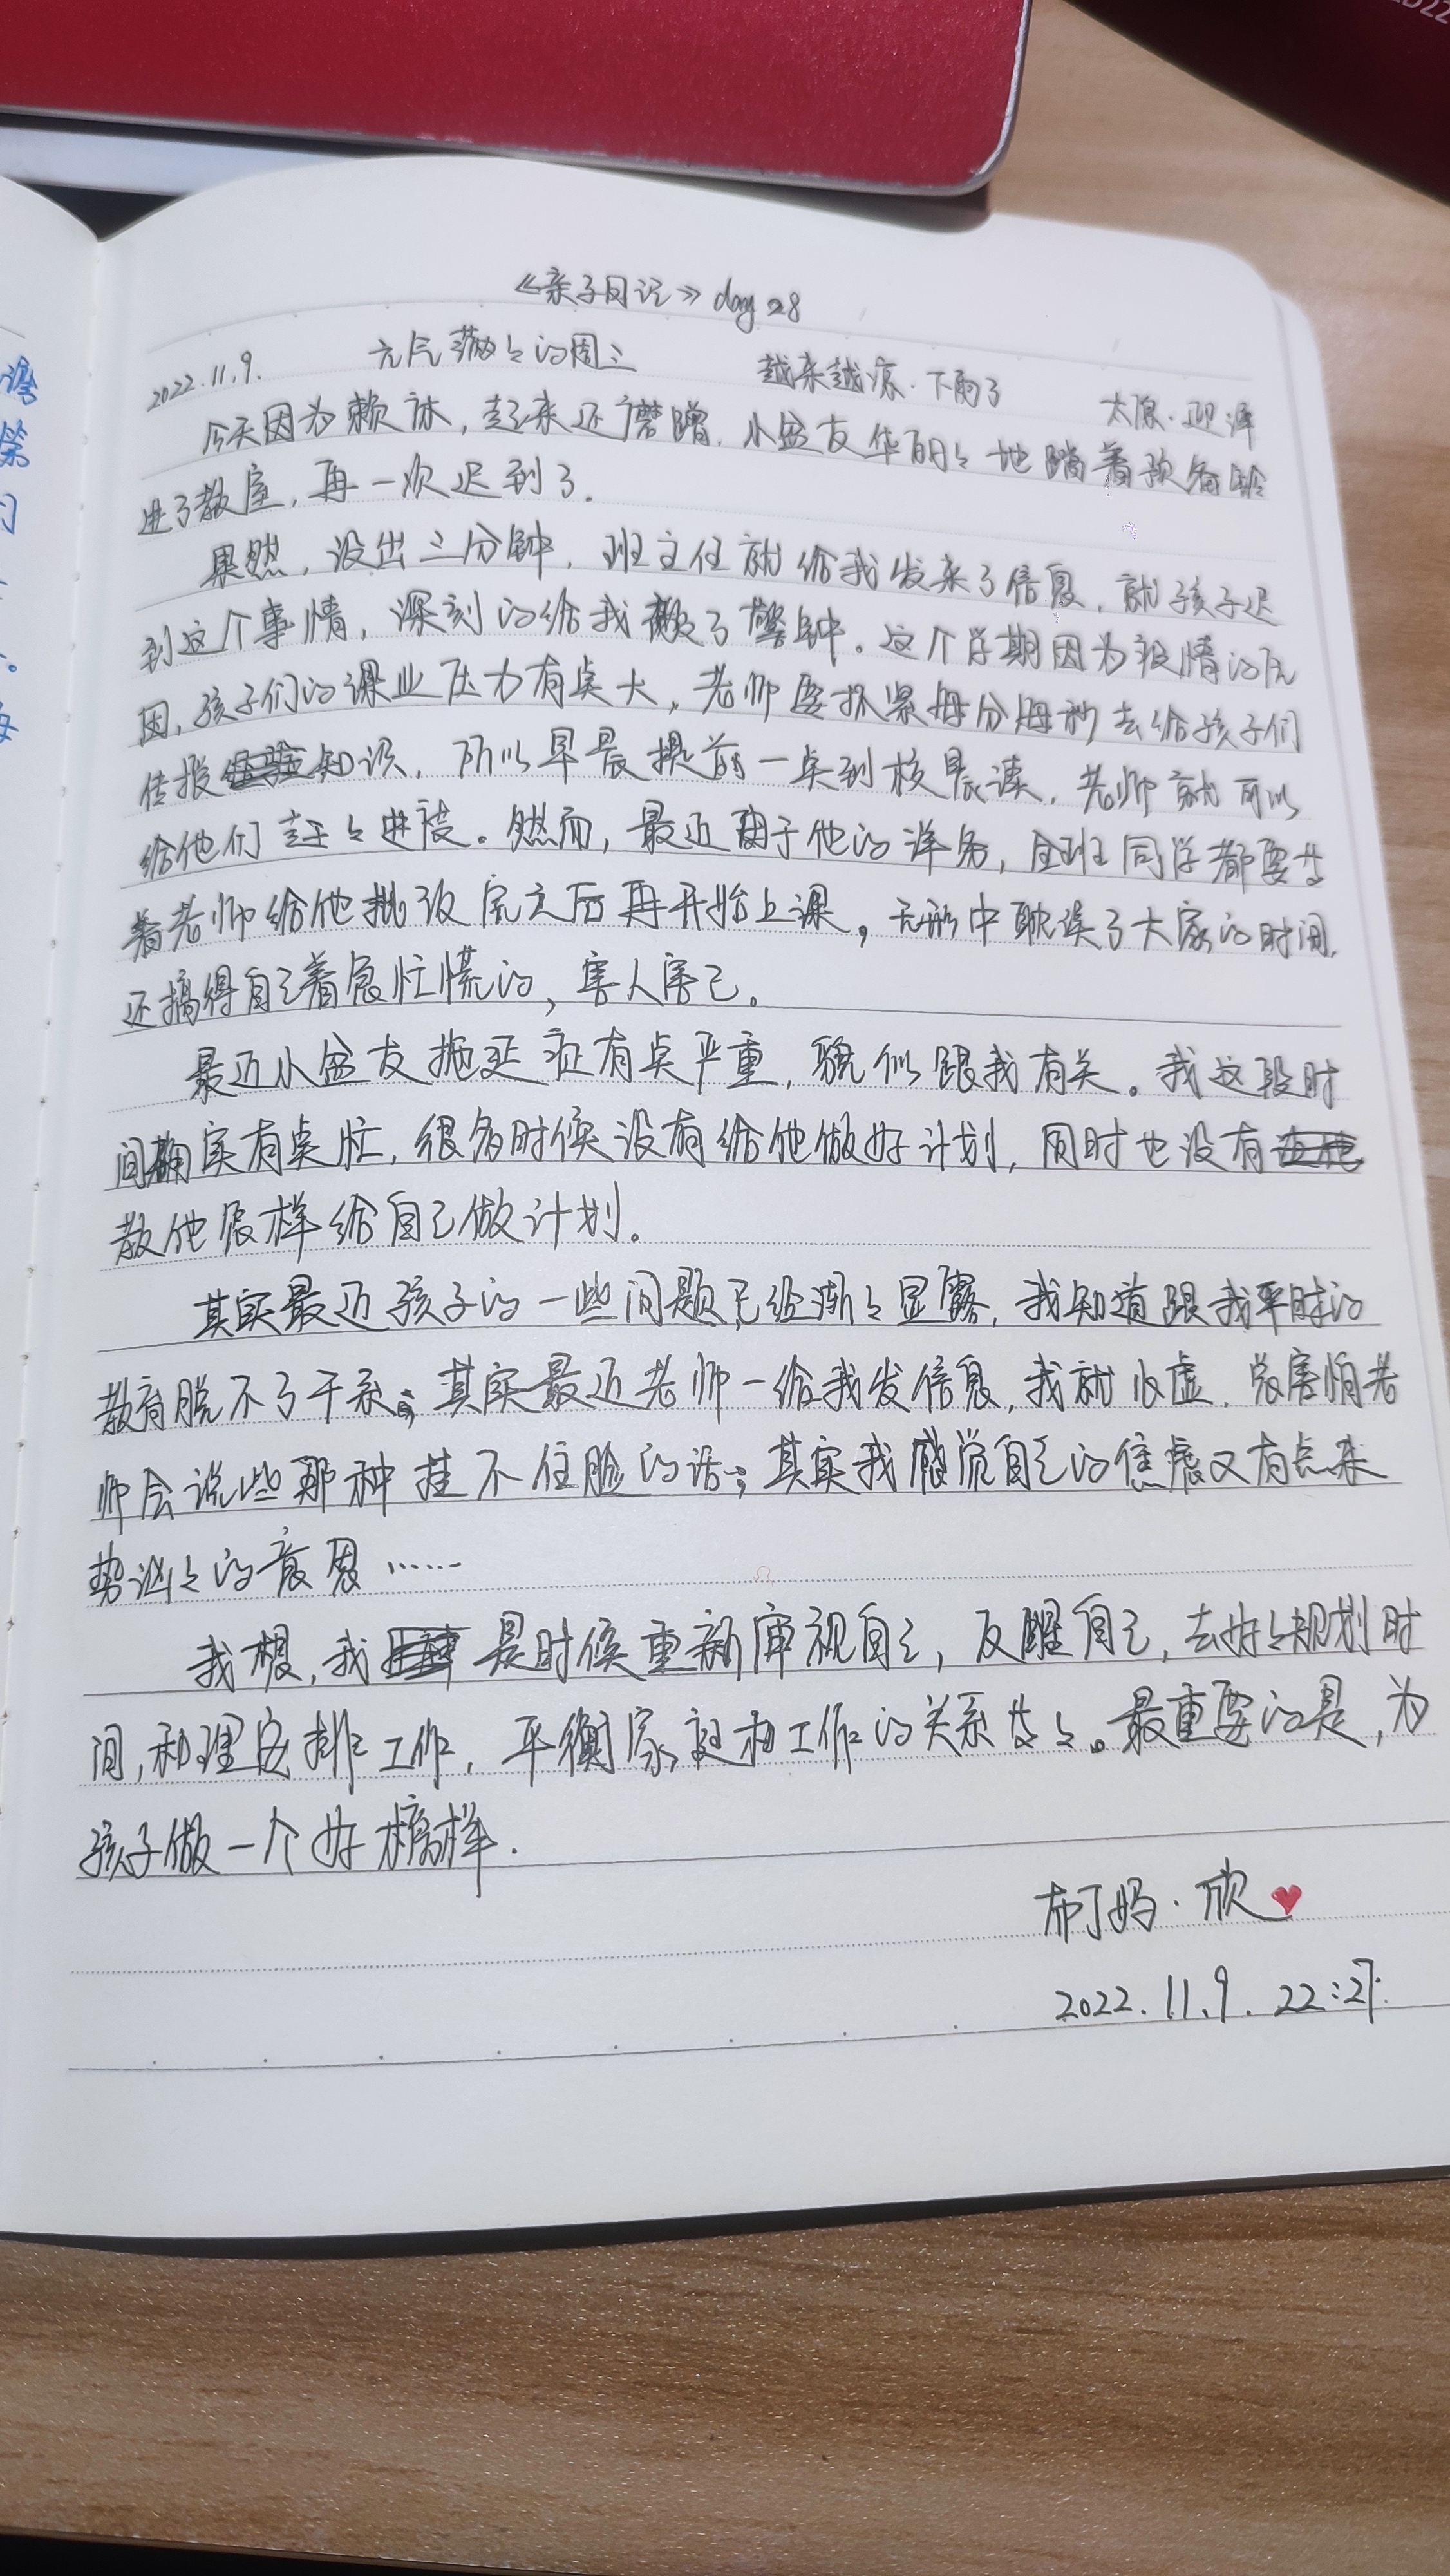 《亲子日记》day 28
2022.11.9. 元气满々的周三 越来越凉·下雨了 太原·迎泽
今天因为赖床,起来还磨蹭,小盆友华丽々地踏着预备铃
进了教室,再一次迟到了.
果然,没出三分钟,班主任就给我发来了信息,就孩子迟
到这个事情,深刻的给我敲了警钟。这个学期因为疫情的原
因,孩子们的课业压力有点大,老师要抓紧每分每秒去给孩子们
传授知识,所以早晨提前一点到校晨读,老师就可以
给他们赶々进度。然而,最近由于他的迟到,全班同学都要等
着老师给他批改完之后再开始上课,无形中耽误了大家的时间,
还搞得自己着急忙慌的,害人害己。
最近小盆友拖延症有点严重,貌似跟我有关。我这段时
间确实有点忙,很多时候没有给他做好计划,同时也没有
教他怎样给自己做计划。
其实最近孩子的一些问题已经渐々显露,我知道跟我平时的
教育脱不了干系;其实最近老师一给我发信息,我就心虚,总害怕老
师会说些那种挂不住脸的话;其实我感觉自己的焦虑又有点来
势汹々的意思……
我想,我是时候重新审视自己,反醒自己,去好々规划时
间,和理安排工作,平衡家庭和工作的关系等々。最重要的是,为
孩子做一个好榜样.
布丁妈·欣
2022.11.9. 22:27.